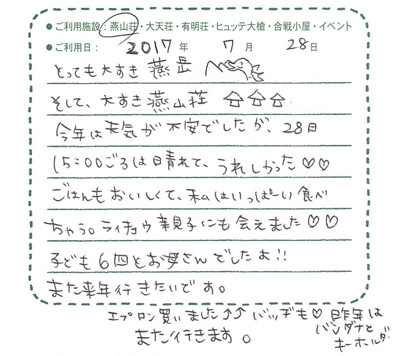 ●ご利用施設：燕山荘・大天荘・有明荘・ヒュッテ大槍・合戦小屋・イベント
●ご利用日： 2017年 7月 28日
とっても大すき 燕岳
そして、大すき燕山荘
今年は天気が不安でしたが、28日
15:00ごろは晴れて、うれしかった♡♡
ごはんもおいしくて、私はいっぱーい食べ
ちゃう。ライチョウ親子にも会えました♡♡
子ども6匹とお母さんでしたよ!!
また来年行きたいです。
エプロン買いました↑↑ バッヂも♡ 昨年は
バンダナと
キーホルダー
また行きます。